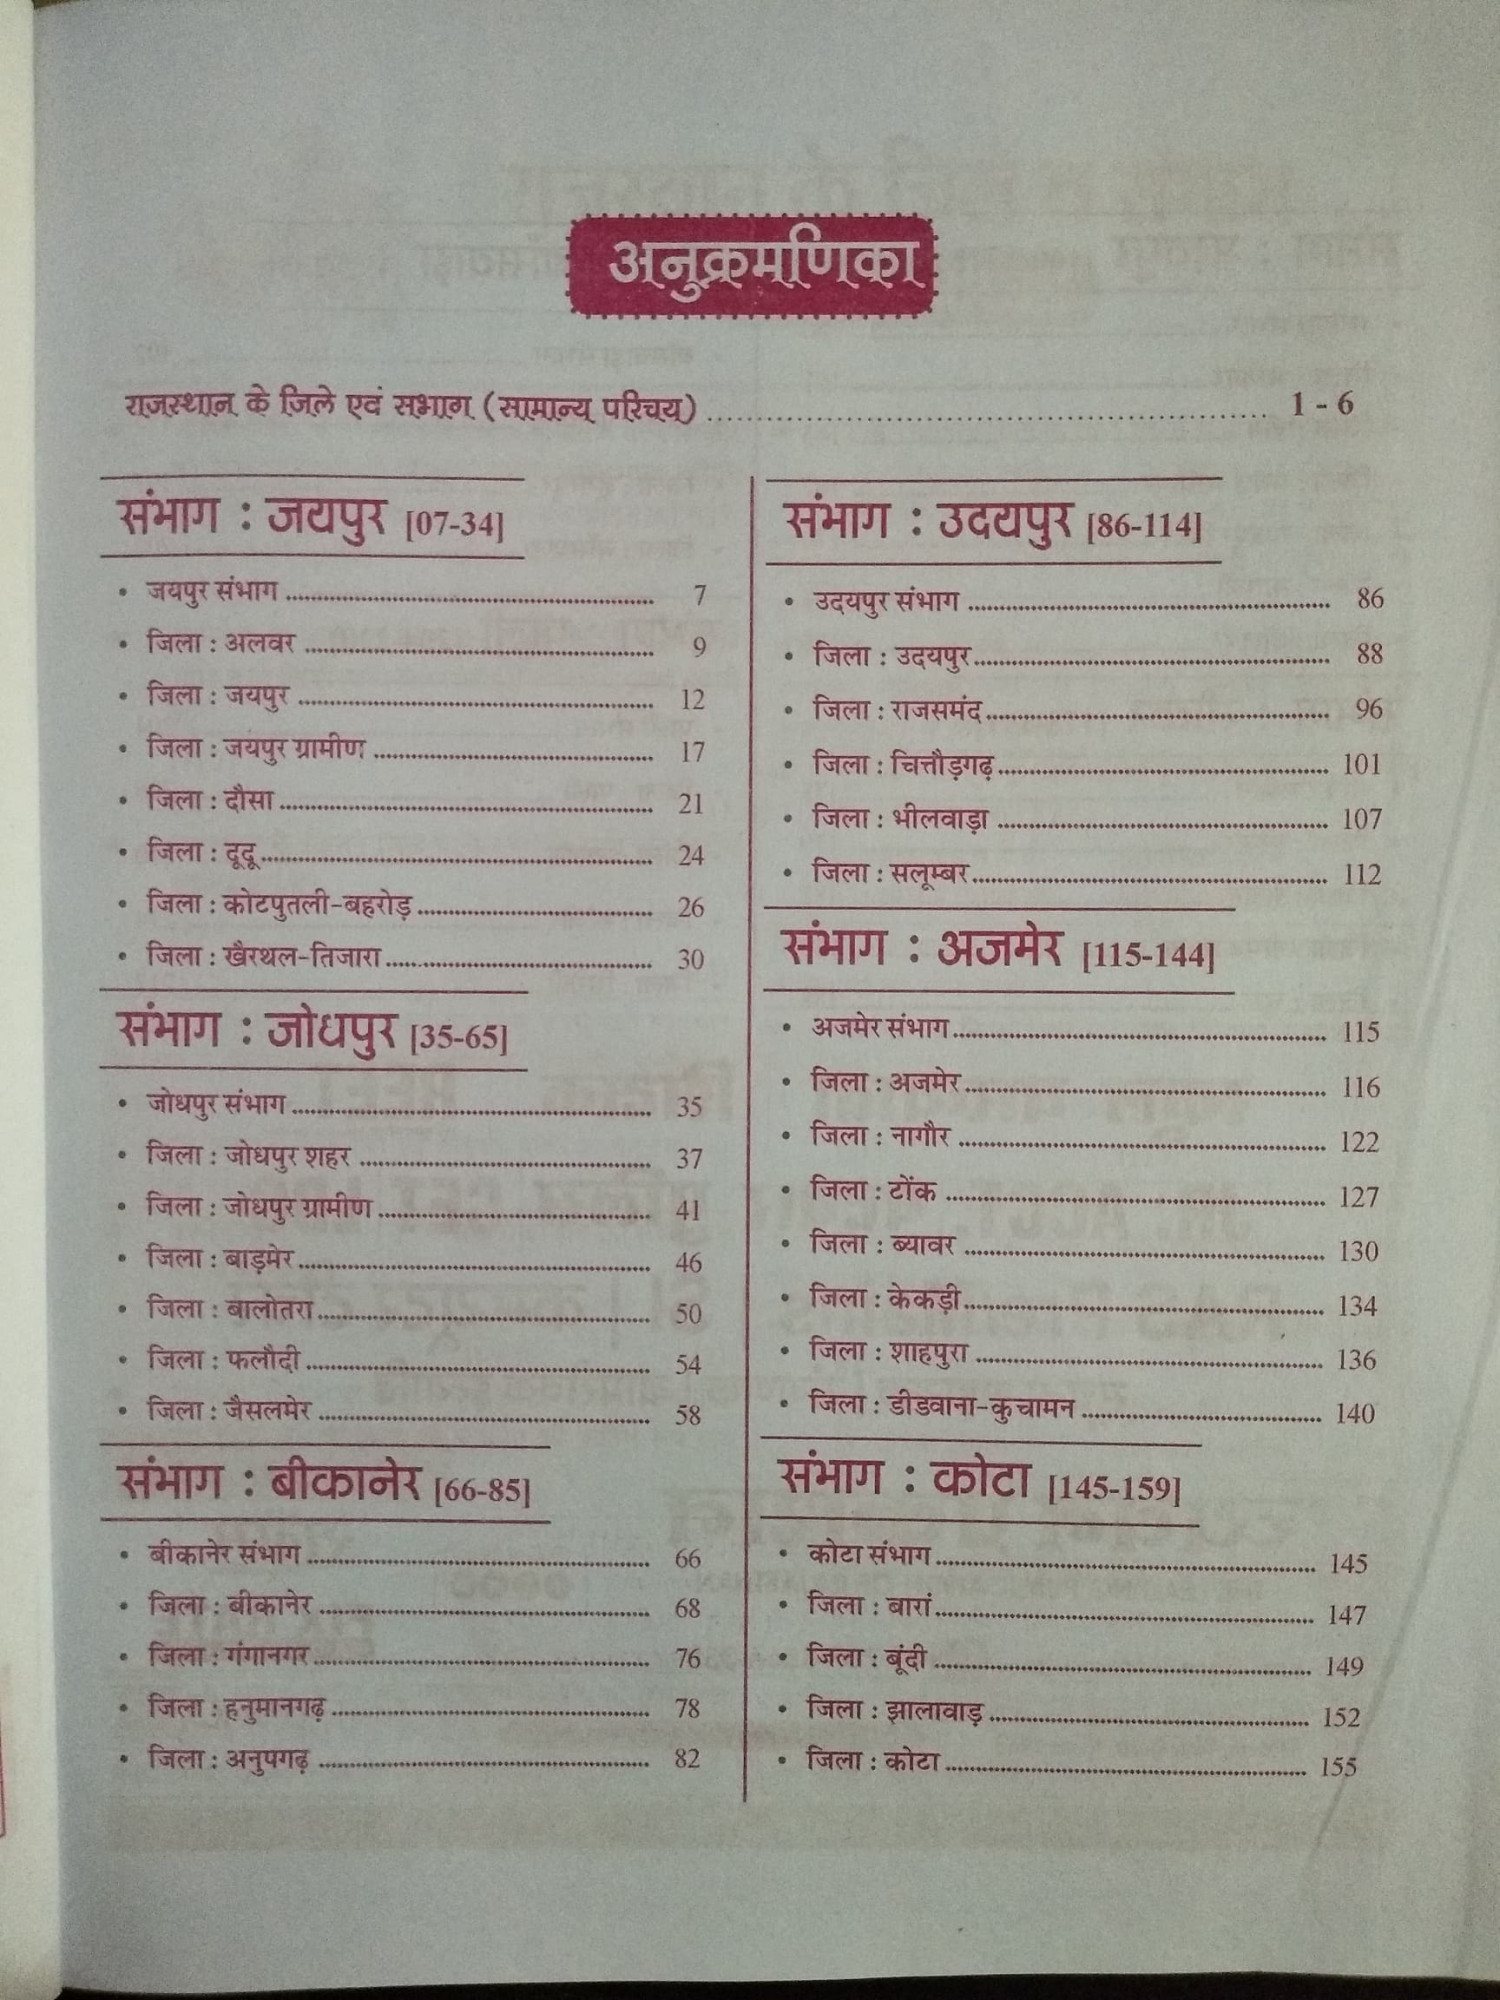 अनुक्रमणिका
राजस्थान के जिले एवं सभाग (सामान्य परिचय) 1 - 6
संभाग : जयपुर [07-34]
• जयपुर संभाग 7
• जिला : अलवर 9
• जिला : जयपुर 12
• जिला : जयपुर ग्रामीण 17
• जिला : दौसा 21
• जिला : दूदू 24
• जिला : कोटपुतली-बहरोड़ 26
• जिला : खैरथल-तिजारा 30
संभाग : जोधपुर [35-65]
• जोधपुर संभाग 35
• जिला : जोधपुर शहर 37
• जिला : जोधपुर ग्रामीण 41
• जिला : बाड़मेर 46
• जिला : बालोतरा 50
• जिला : फलौदी 54
• जिला : जैसलमेर 58
संभाग : बीकानेर [66-85]
• बीकानेर संभाग 66
• जिला : बीकानेर 68
• जिला : गंगानगर 76
• जिला : हनुमानगढ़ 78
• जिला : अनुपगढ़ 82
संभाग : उदयपुर [86-114]
• उदयपुर संभाग 86
• जिला : उदयपुर 88
• जिला : राजसमंद 96
• जिला : चित्तौड़गढ़ 101
• जिला : भीलवाड़ा 107
• जिला : सलूम्बर 112
संभाग : अजमेर [115-144]
• अजमेर संभाग 115
• जिला : अजमेर 116
• जिला : नागौर 122
• जिला : टोंक 127
• जिला : ब्यावर 130
• जिला : केकड़ी 134
• जिला : शाहपुरा 136
• जिला : डीडवाना-कुचामन 140
संभाग : कोटा [145-159]
• कोटा संभाग 145
• जिला : बारां 147
• जिला : बूंदी 149
• जिला : झालावाड़ 152
• जिला : कोटा 155